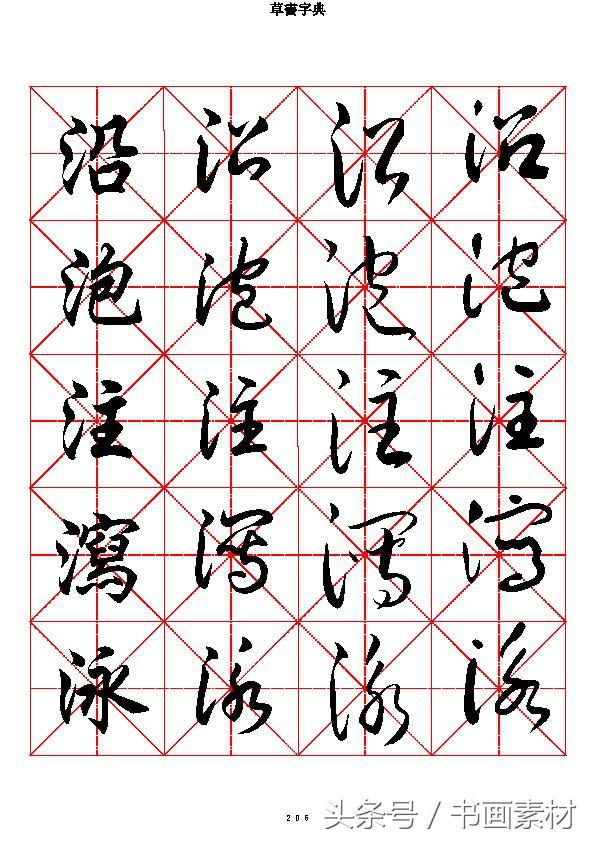 草書字典
沿 沿 沿 沿
泡 泡 泡 泡
注 注 注 注
瀉 瀉 瀉 瀉
泳 泳 泳 泳
206
头条号 / 书画素材